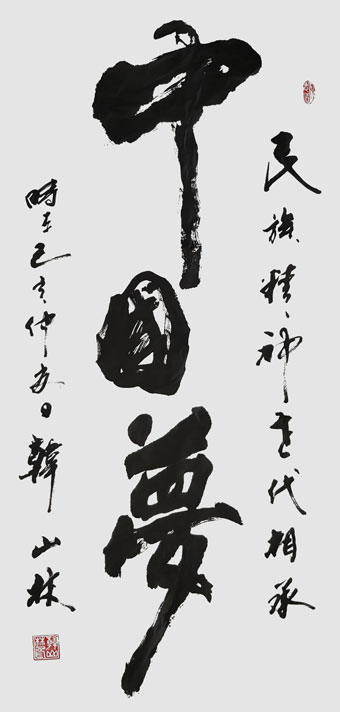 民族精神世代相承
中國夢
時至己亥仲夏日韓山林